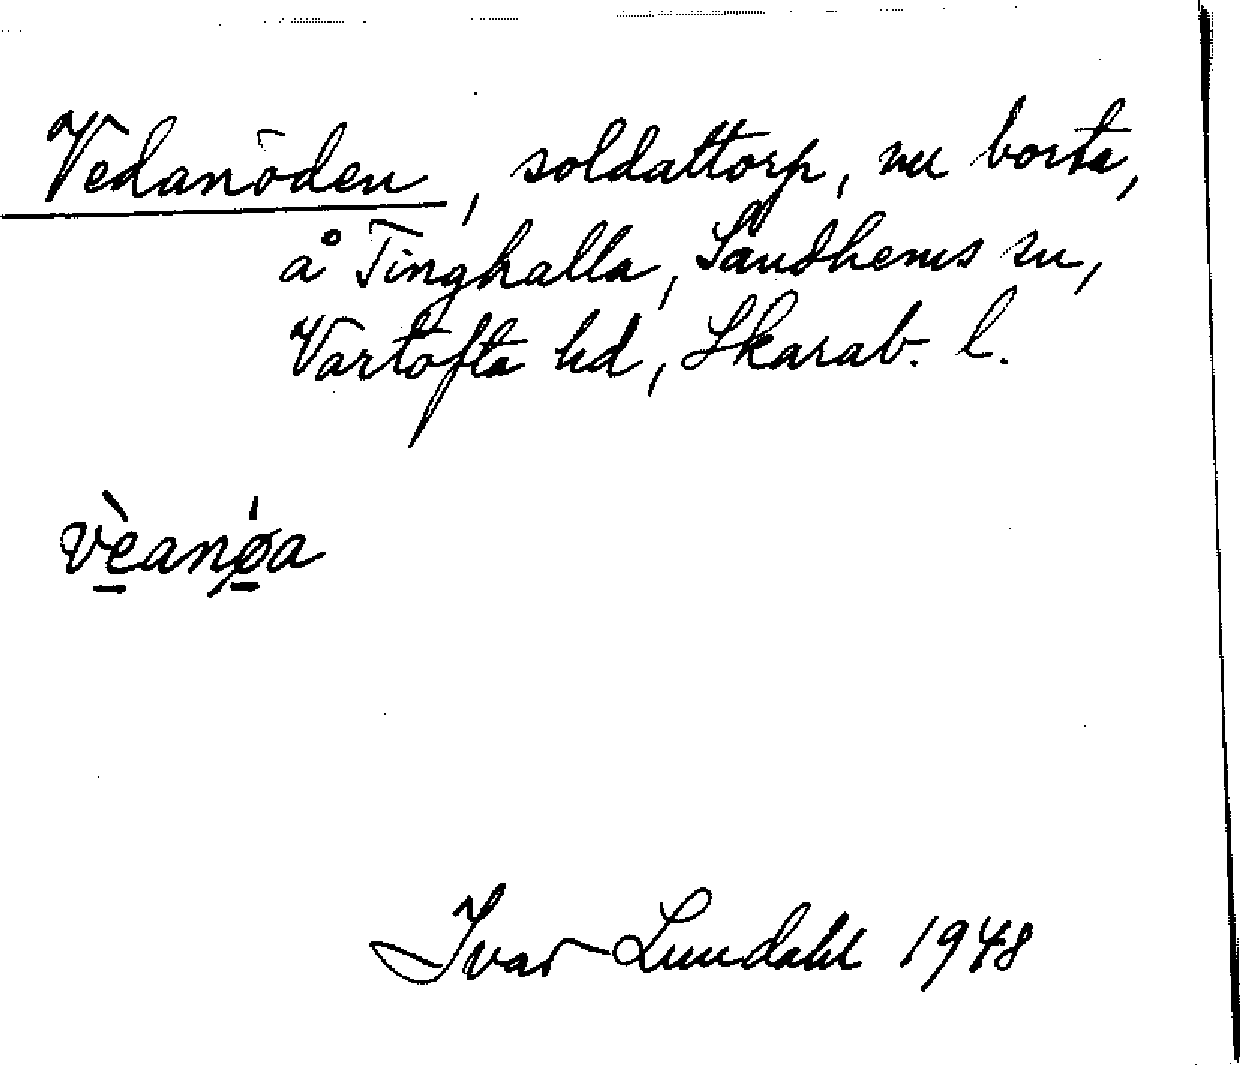 Vedanöden, soldattorp, nu borta,
å Tinghalla, Sandhems sn,
Vartofta hd, Skarab. l.
vè̱anǿ̱a
Ivar Lundahl 1948